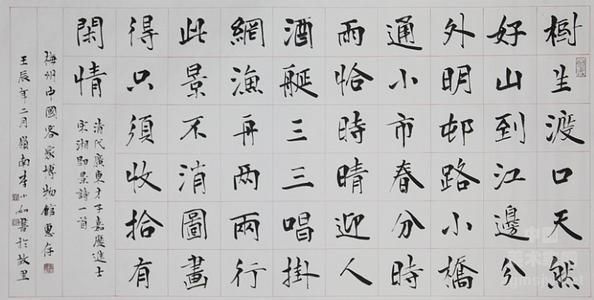 樹生渡口天然
好山到江邊分
外明邨路小橋
通小市春分時
雨恰時晴迎人
酒艇三三唱掛
網漁舟兩兩行
此景不消圖畫
得只須收拾有
閑情
清代廣東才子嘉應進士
宋湘景詩一首
梅州中國客家博物館惠存
壬辰年二月嶺南李小如書於故里